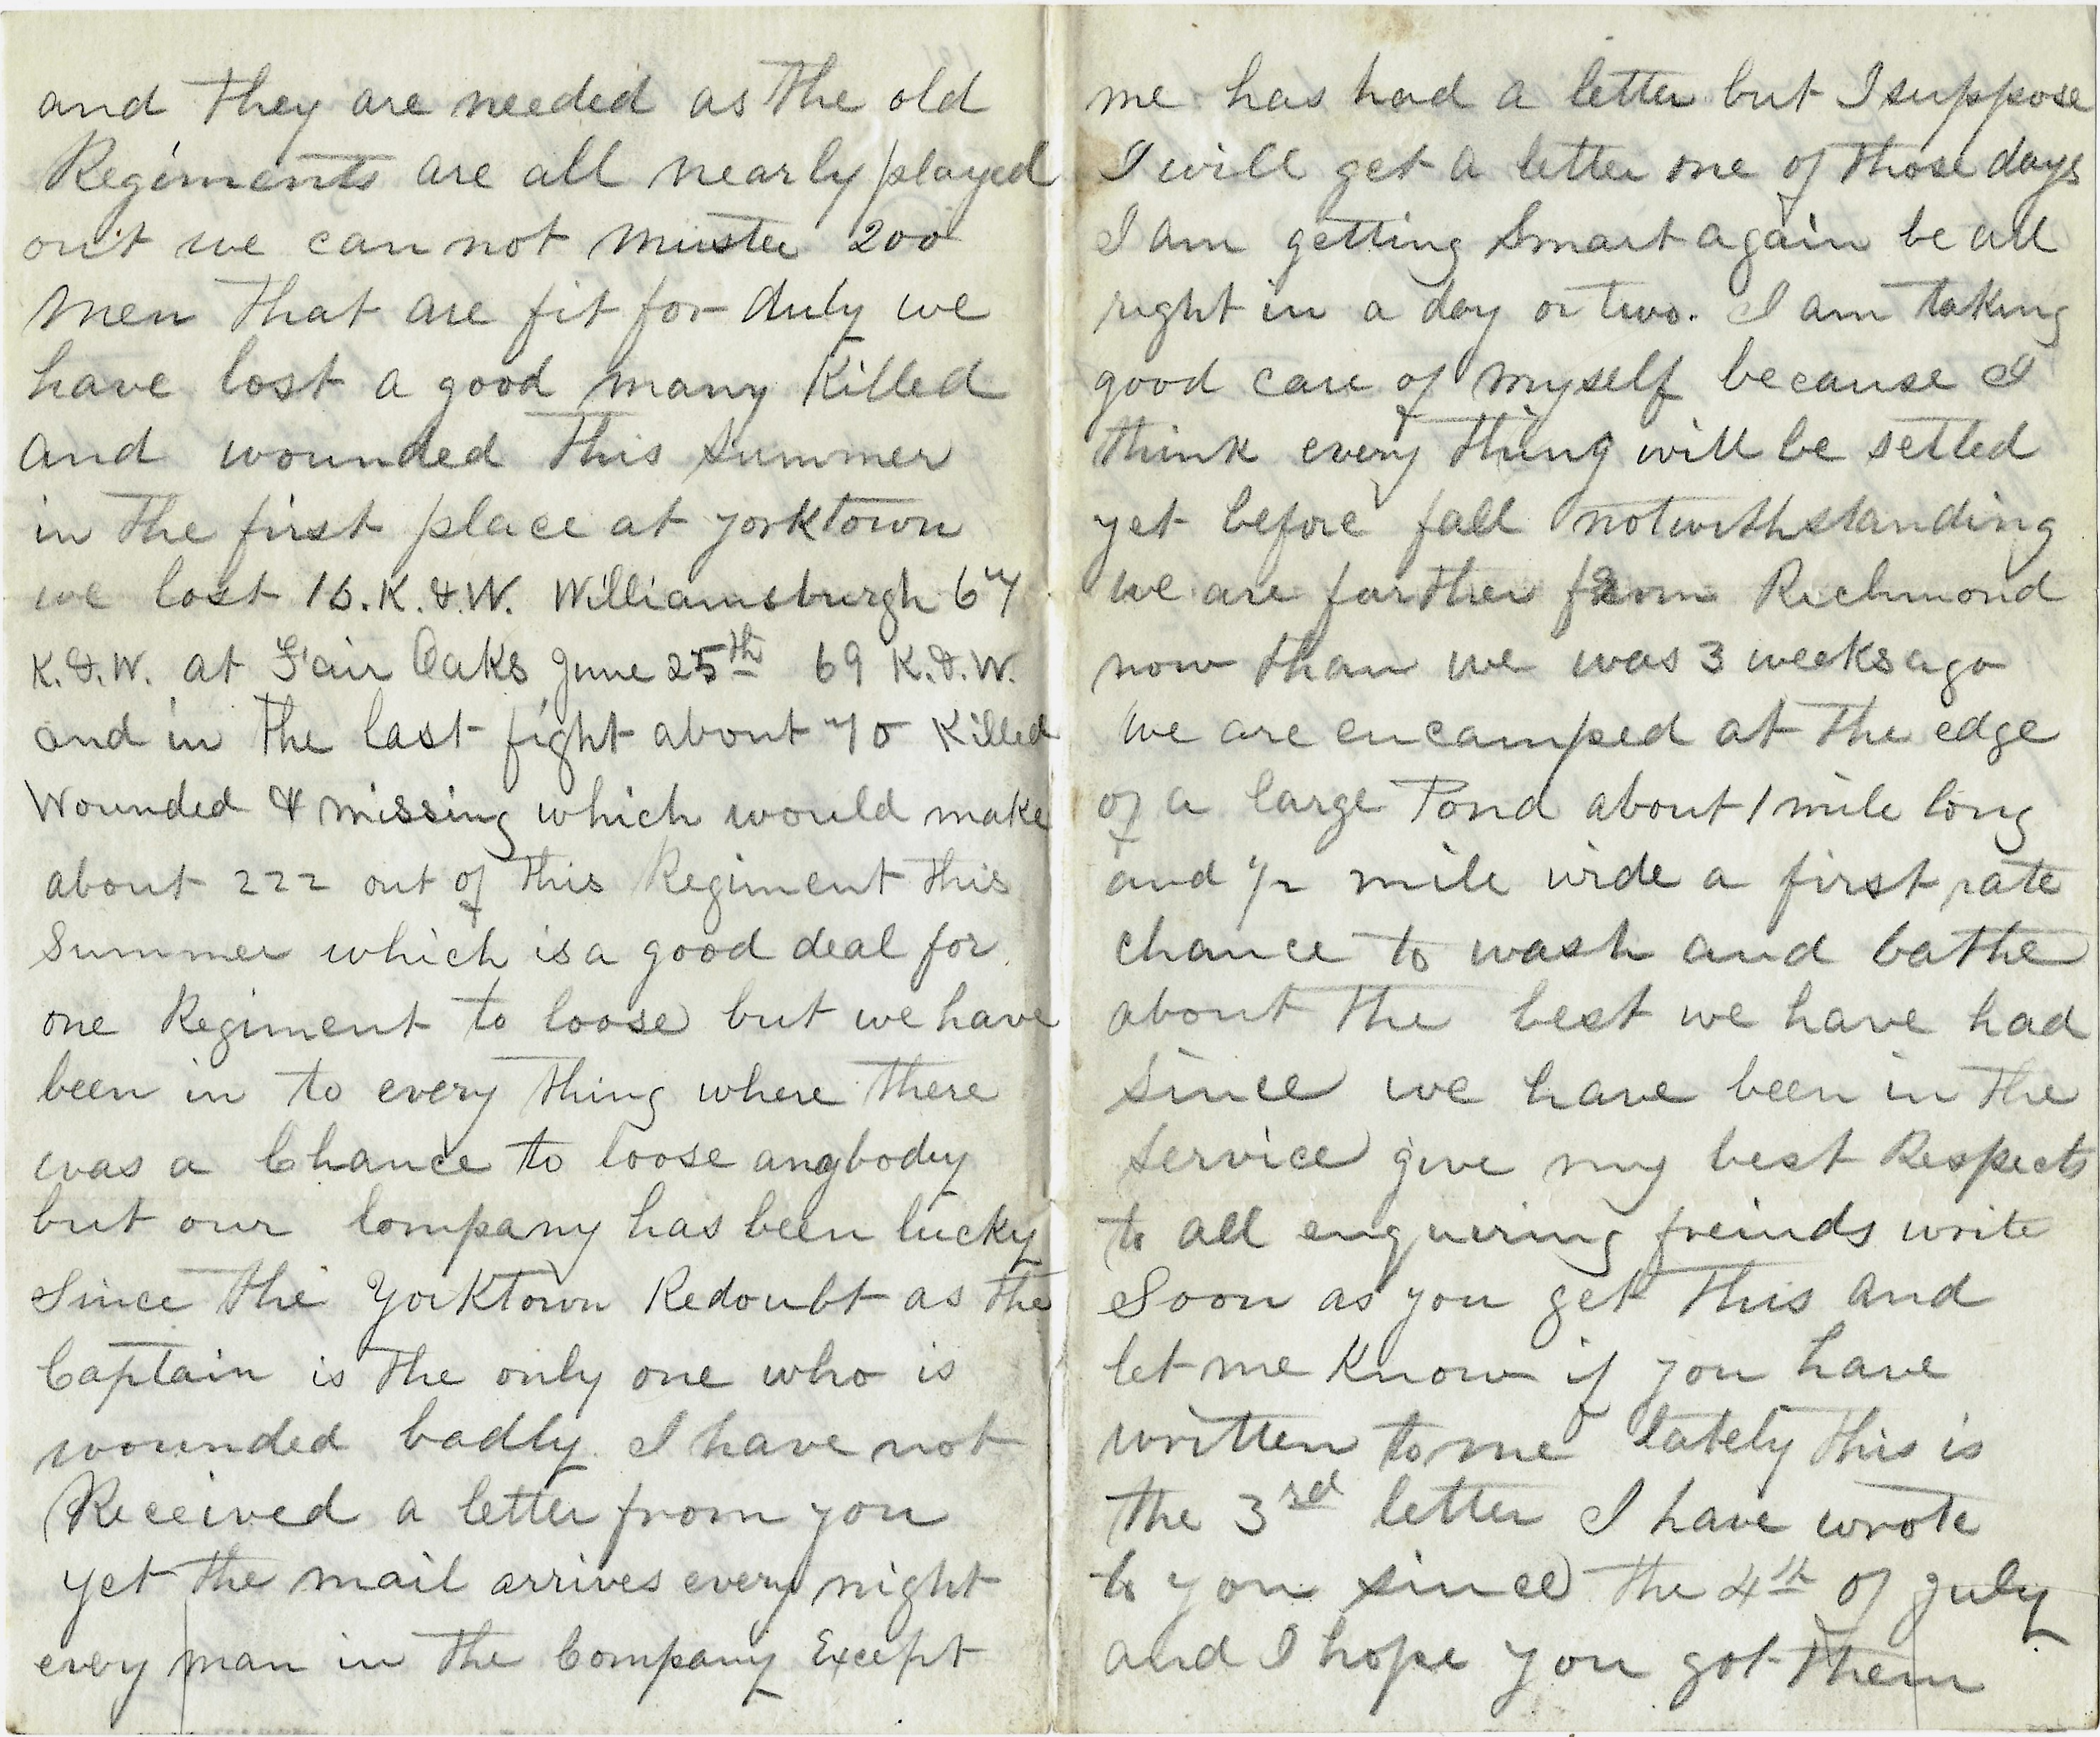 and they are needed as the old
Regiments are all nearly played
out we can not muster 200
men that are fit for duty we
have lost a good many Killed
and wounded this summer
in the first place at yorktown
we lost 16. K. & W. Williamsburgh 67
K. & W. at Fair Oaks June 25th 69 K. & W.
and in the last fight about 70 Killed
Wounded & missing which would make
about 222 out of this Regiment this
summer which is a good deal for
one Regiment to loose but we have
been in to every thing where there
was a Chance to loose anybody
but our Company has been lucky
Since the Yorktown Redoubt as the
Captain is the only one who is
wounded badly. I have not
Received a letter from you
yet the mail arrives every night
every man in the Company Except
me has had a letter but I suppose
I will get a letter one of those days
I am getting Smart again be all
right in a day or two. I am taking
good care of myself because I
think every thing will be setled
yet before fall notwithstanding
we are farther from Richmond
now than we was 3 weeks ago
We are encamped at the edge
of a large Pond about 1 mile long
and 1/2 mile wide a first rate
chance to wash and bathe
about the best we have had
since we have been in the
service give my best Respects
to all enquiring freinds write
Soon as you get this and
let me Know if you have
written to me lately this is
the 3rd letter I have wrote
to you since the 4th of July
and I hope you got them